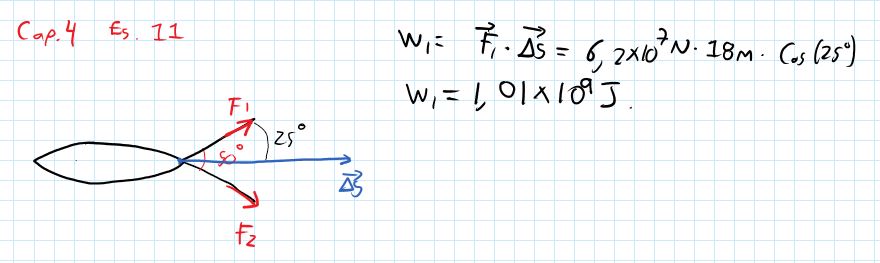 Cap.4 Es. 11
W₁ = F₁ · Δs = 6,2×10⁷N · 18m · Cos(25°)
W₁ = 1,01×10⁹ J.
F1
25°
50°
Δs
F2